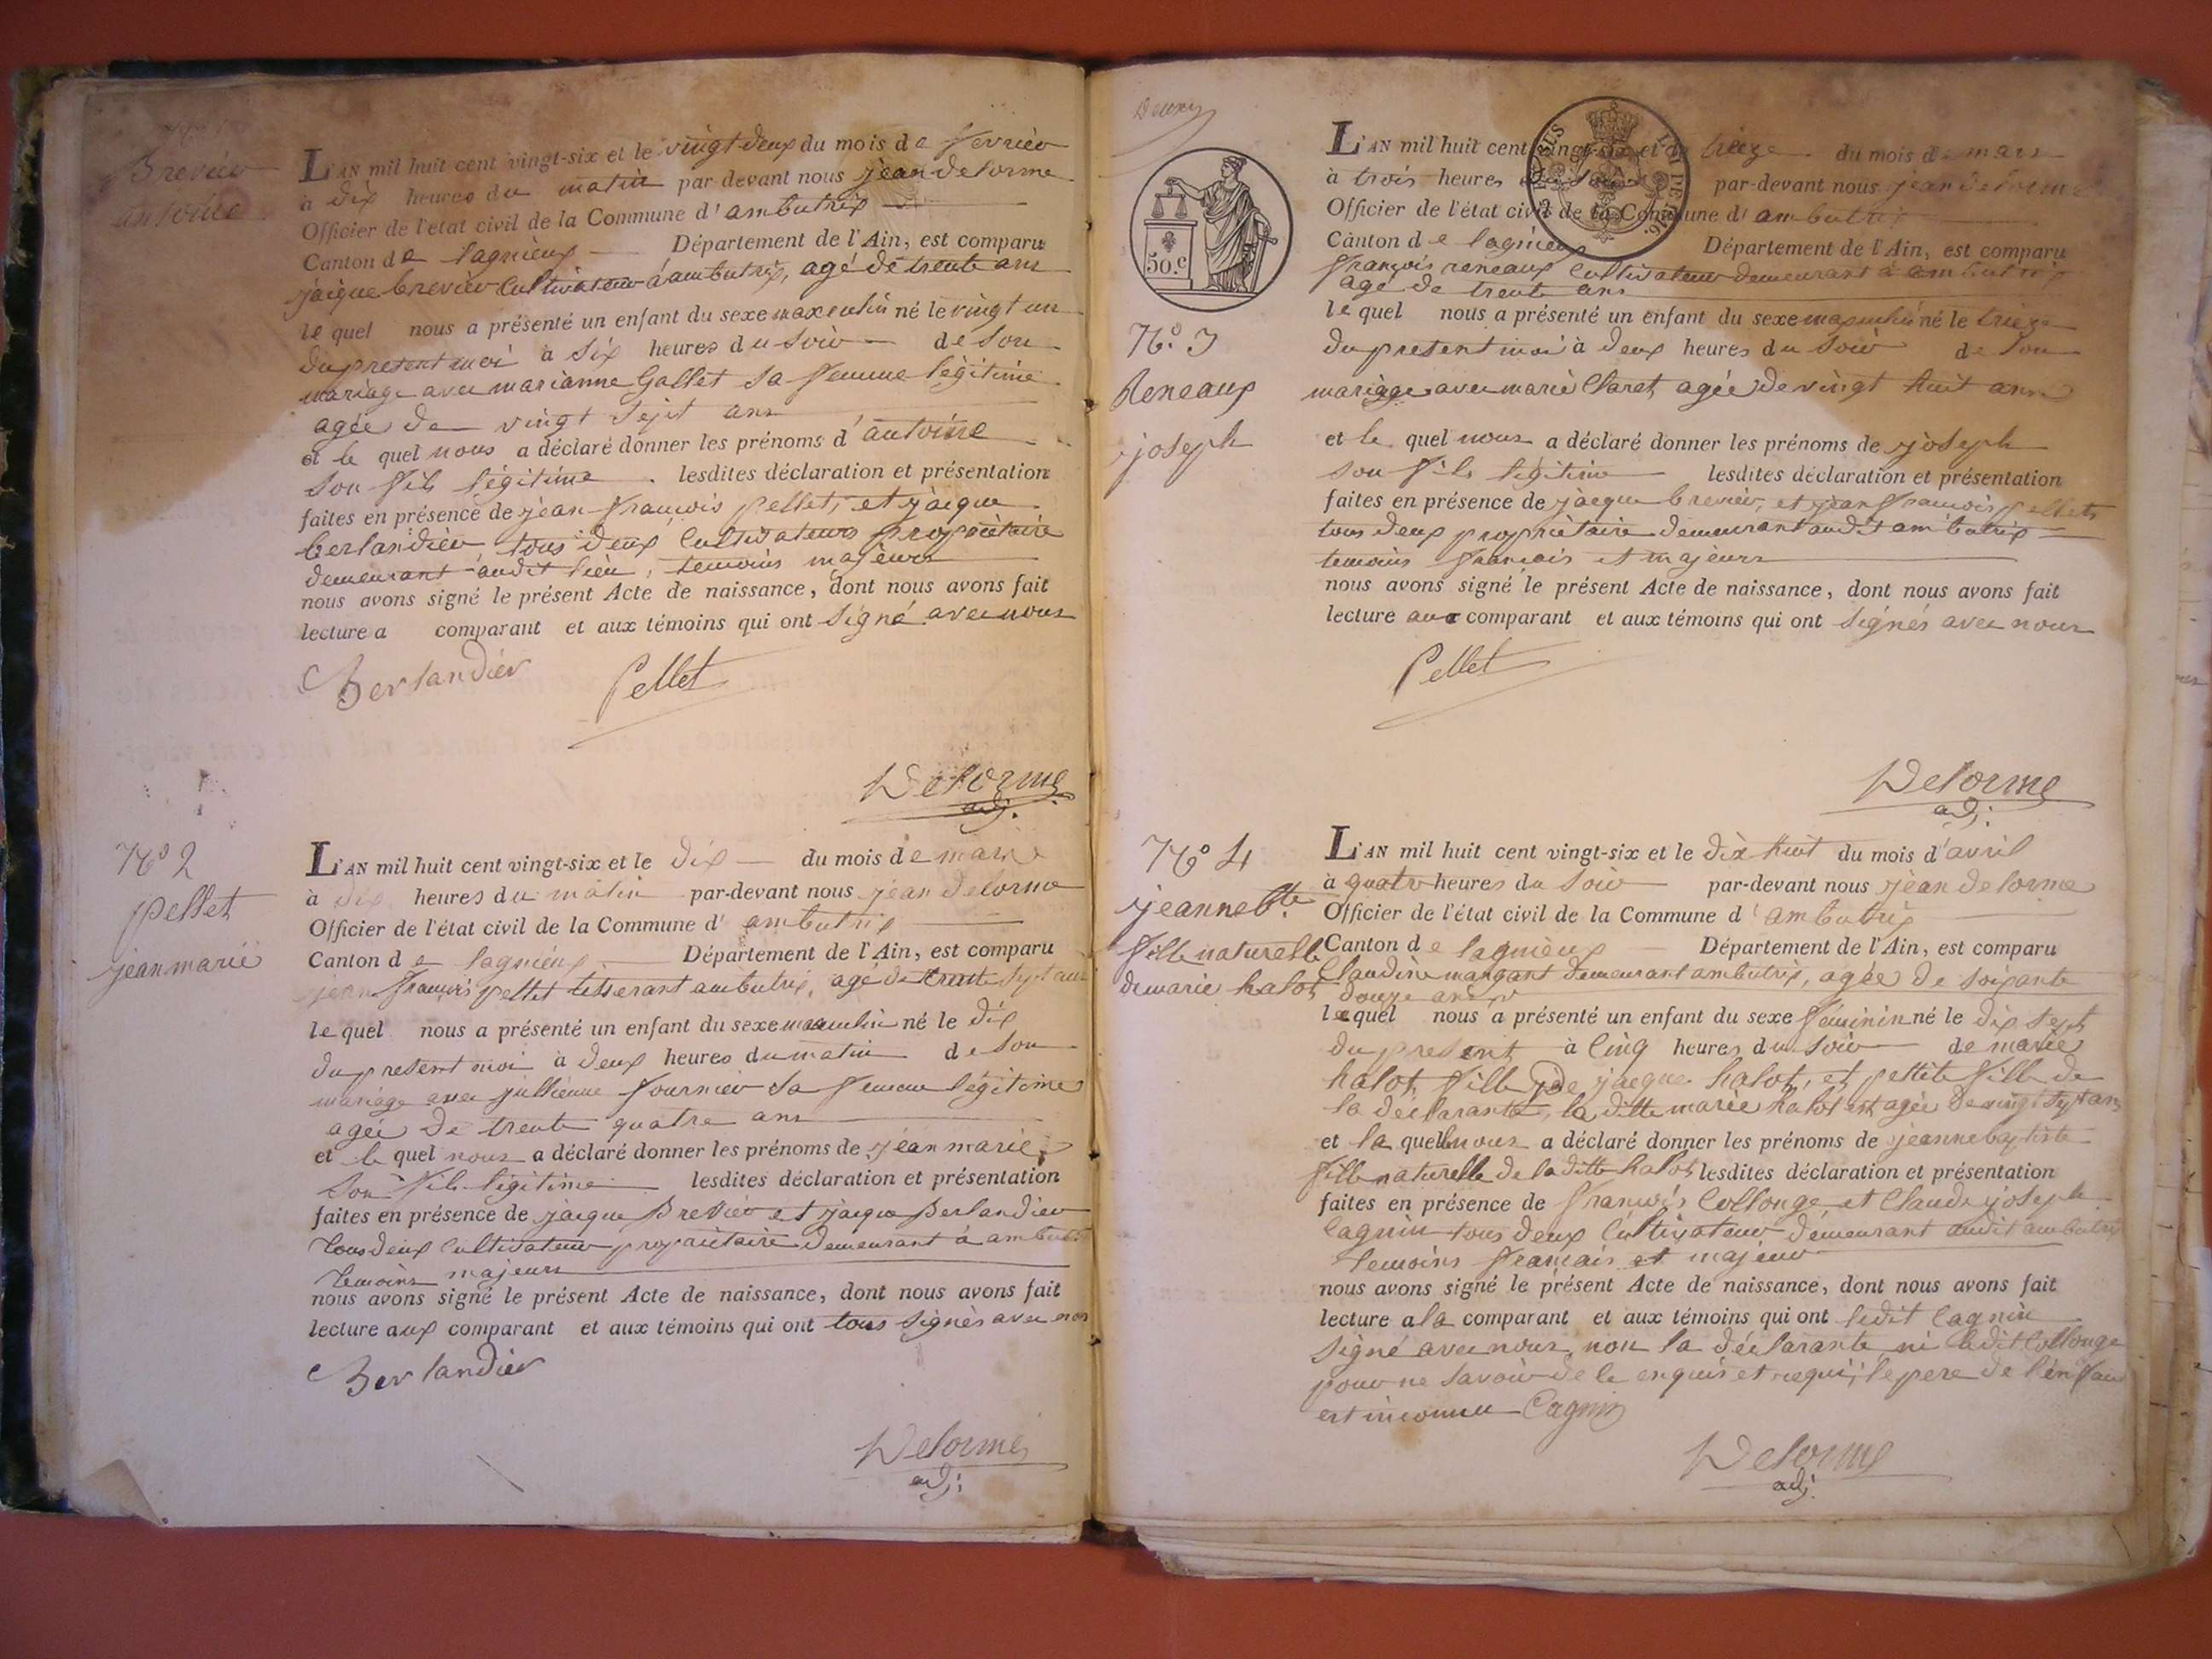 Brevier
antoine
L'AN mil huit cent vingt-six et le vingt deux du mois de fevrier
à dix heures du matin par-devant nous jean delorme
Officier de l'état civil de la Commune d'ambutrix
Canton de lagnieux Département de l'Ain, est comparu
jaique brevier Cultivateur a ambutrix, agé de trente ans
le quel nous a présenté un enfant du sexe maxculin né le vingt un
du present moi à six heures du soir de son
mariage avec marianne Gallet sa femme légitime
agée de vingt sept ans
et le quel nous a déclaré donner les prénoms d'antoine
son fils légitime lesdites déclaration et présentation
faites en présence de jean françois pellet, et jaique
berlandier tous deux Cultivateurs propriétaire
demeurant audit lieu, temoins majeurs
nous avons signé le présent Acte de naissance, dont nous avons fait
lecture a comparant et aux témoins qui ont signé avec nous
Berlandier Pellet
Delorme
adj.
N° 2
pellet
jean marie
L'AN mil huit cent vingt-six et le dix du mois de mars
à dix heures du matin par-devant nous jean delorme
Officier de l'état civil de la Commune d'ambutrix
Canton de lagnieux Département de l'Ain, est comparu
jean françois pellet tisserant a ambutrix, agé de trente sept ans
le quel nous a présenté un enfant du sexe masculin né le dix
du present moi à deux heures du matin de son
mariage avec jullienne fournier sa femme légitime
agée de trente quatre ans
et le quel nous a déclaré donner les prénoms de jean marie
son fils légitime lesdites déclaration et présentation
faites en présence de jaique Brevier et jaique Berlandier
tous deux Cultivateur propriétaire demeurant à ambutrix
temoins majeurs
nous avons signé le présent Acte de naissance, dont nous avons fait
lecture aux comparant et aux témoins qui ont tous signés avec nous
Berlandier
Delorme
adj.
50.c
N° 3
Reneaux
joseph
L'AN mil huit cent vingt-six et le treize du mois de mars
à trois heures du soir par-devant nous jean delorme
Officier de l'état civil de la Commune d'ambutrix
Canton de lagnieux Département de l'Ain, est comparu
françois reneaux Cultivateur demeurant à ambutrix
agé de trente ans
le quel nous a présenté un enfant du sexe masculin né le treize
du present moi à deux heures du soir de son
mariage avec marie Claret agée de vingt huit ans
et le quel nous a déclaré donner les prénoms de joseph
son fils légitime lesdites déclaration et présentation
faites en présence de jacque brevier, et jean françois pellet
tous deux propriétaire demeurant audit ambutrix
temoins français et majeurs
nous avons signé le présent Acte de naissance, dont nous avons fait
lecture aux comparant et aux témoins qui ont signés avec nous
Pellet
Delorme
adj.
N° 4
jeanne Bte
fille naturelle
de marie halot
L'AN mil huit cent vingt-six et le dix huit du mois d'avril
à quatre heures du soir par-devant nous jean delorme
Officier de l'état civil de la Commune d'ambutrix
Canton de lagnieux Département de l'Ain, est comparu
Claudine mangant demeurant ambutrix, agée de soixante
douze ans
laquel nous a présenté un enfant du sexe féminin né le dix sept
du present à cinq heures du soir de marie
halot fille de jacque halot, et pettite fille de
la déclarante, la ditte marie halot est agée de vingt sept ans
et la quelle nous a déclaré donner les prénoms de jeanne baptiste
fille naturelle de la ditte halot lesdites déclaration et présentation
faites en présence de françois Collonge, et Claude joseph
Cagnin tous deux Cultivateur demeurant audit ambutrix
temoins français et majeur
nous avons signé le présent Acte de naissance, dont nous avons fait
lecture a la comparant et aux témoins qui ont ledit Cagnin
signé avec nous, non la déclarante ni ledit Collonge
pour ne savoir de le enquis et requi, le pere de l'enfant
est inconnu Cagnin
Delorme
adj.